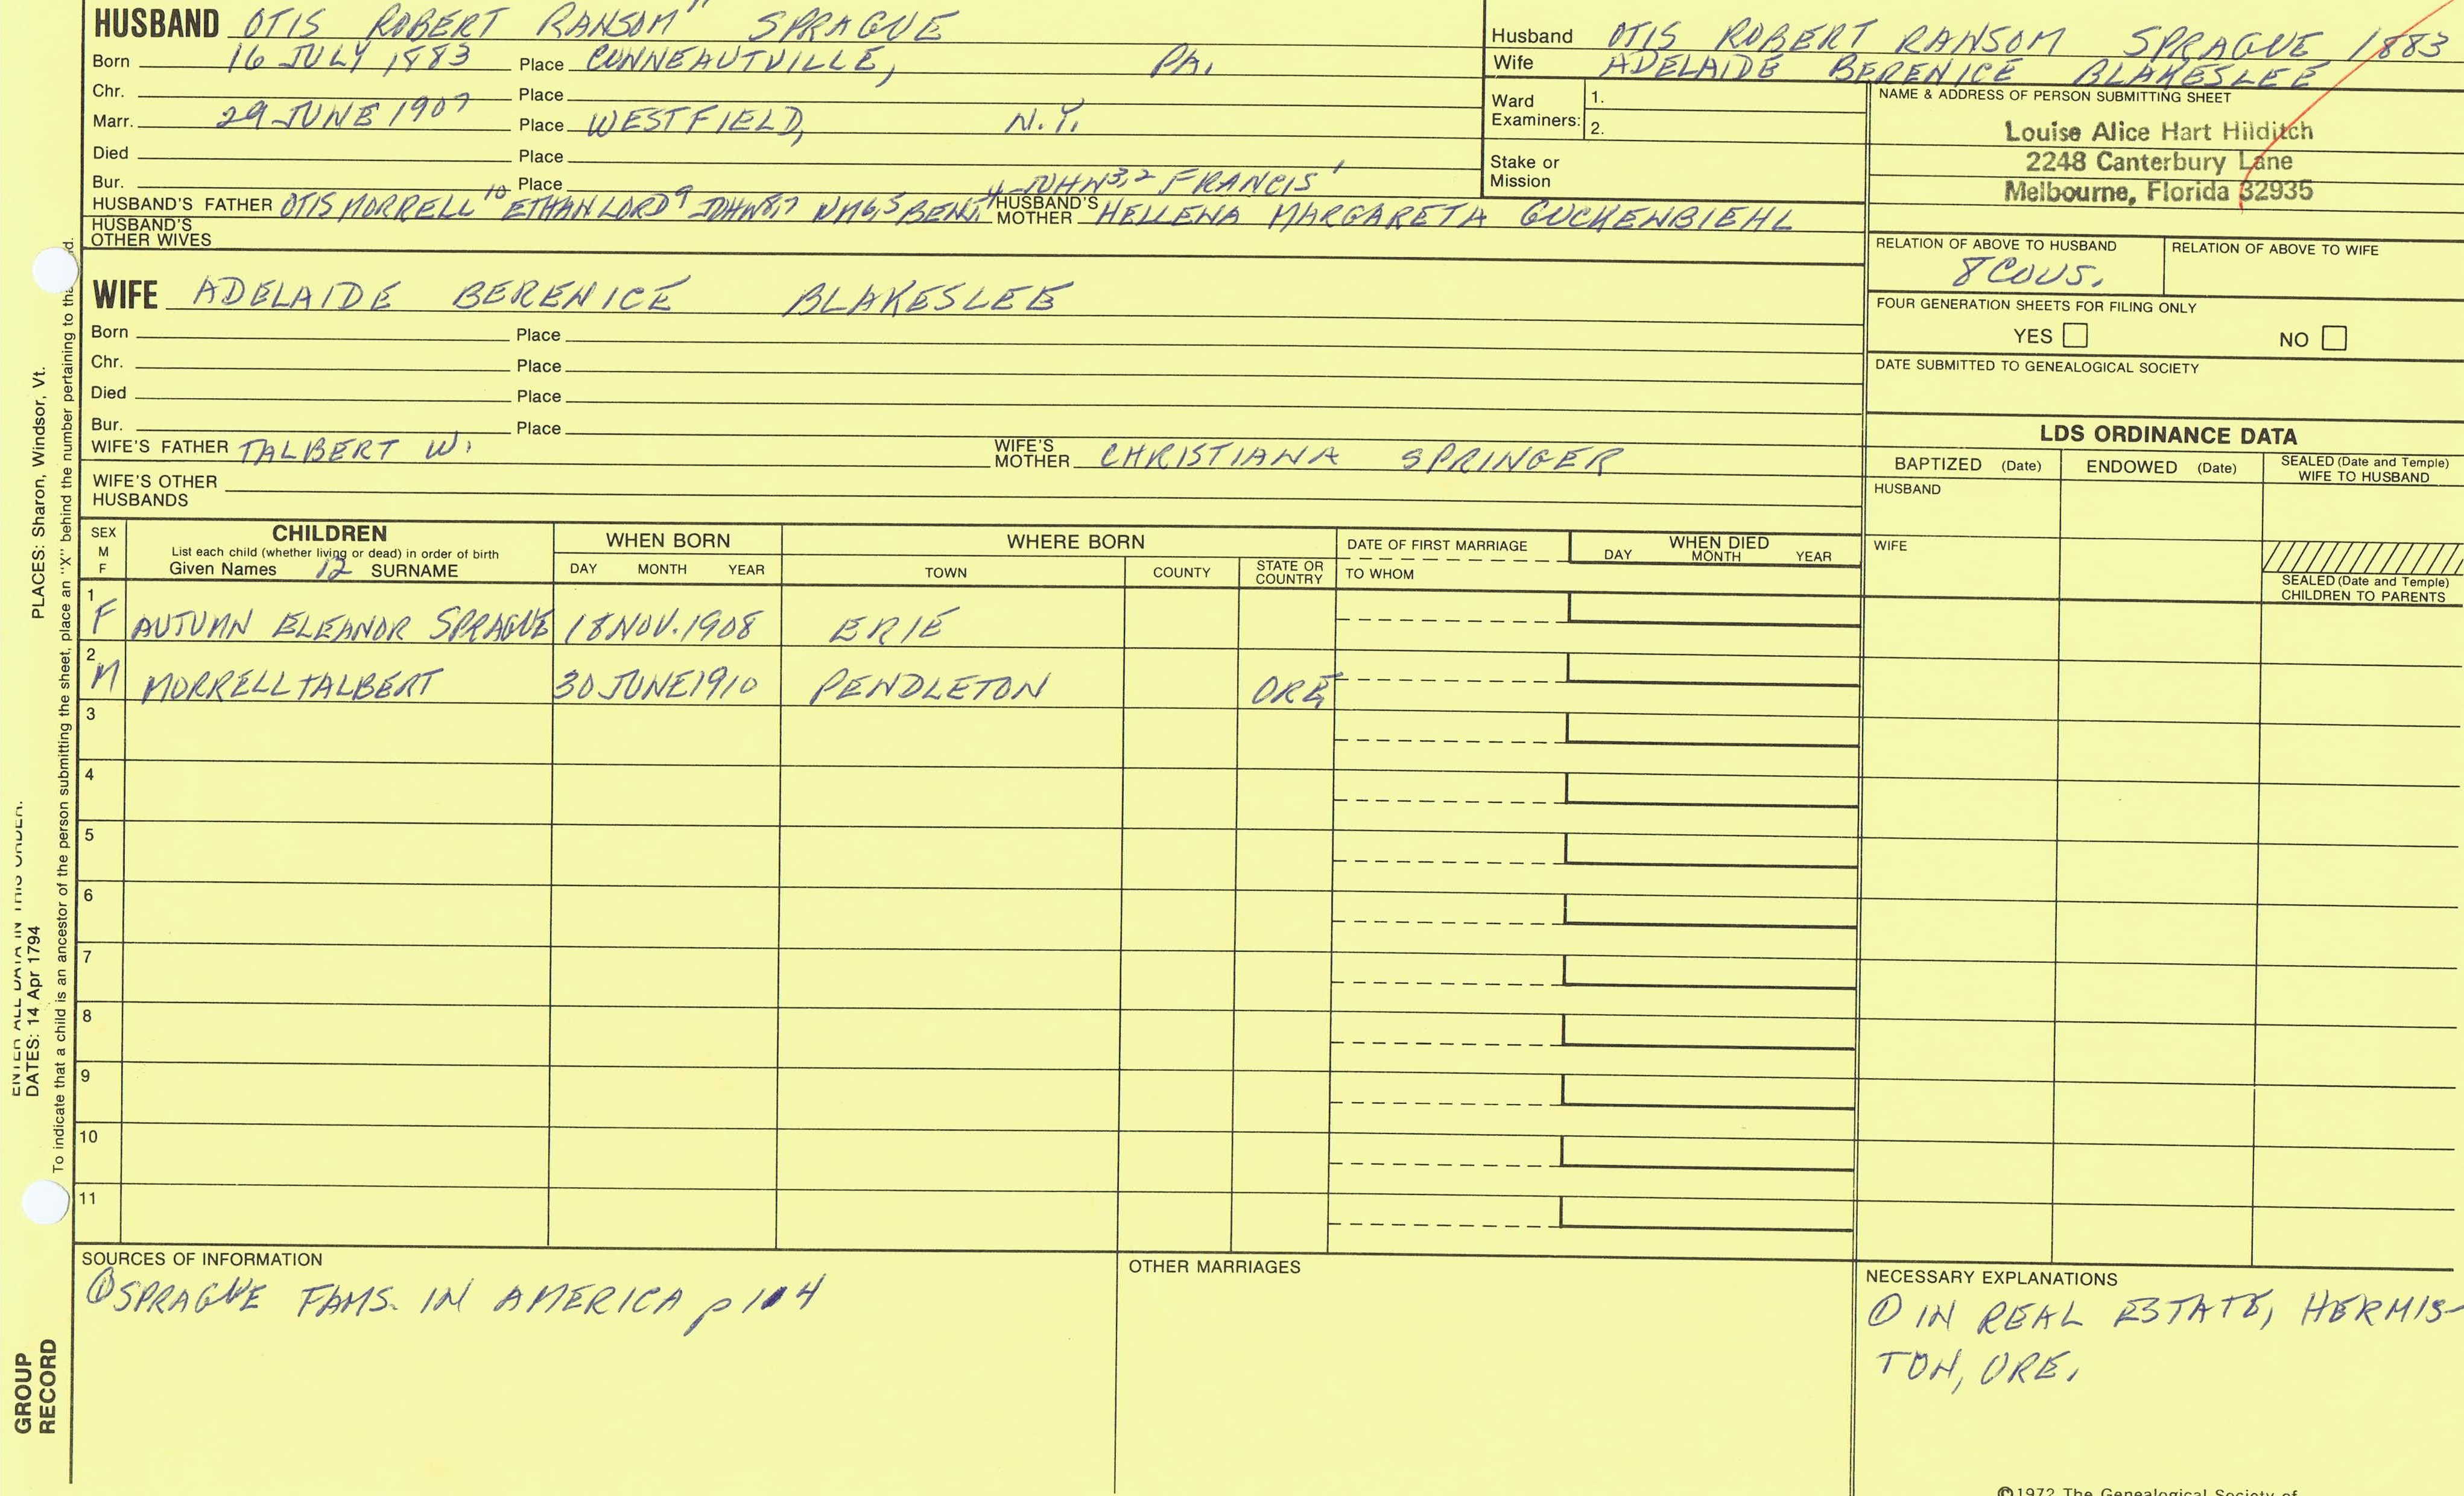 HUSBAND OTIS ROBERT RANSOM" SPRAGUE
Born 16 JULY 1883 Place CONNEAUTVILLE, PA.
Chr. Place
Marr. 29 JUNE 1907 Place WESTFIELD, N.Y.
Died Place
Bur. Place
HUSBAND'S FATHER OTIS MORRELL 10 ETHAN LORD 9 JOHN 8,7 WM 6,5 BENJ. 4 JOHN 3,2 FRANCIS 1 HUSBAND'S MOTHER HELLENA MARGARETA GUCKENBIEHL
HUSBAND'S OTHER WIVES
Husband OTIS ROBERT RANSOM SPRAGUE 1883
Wife ADELAIDE BERENICE BLAKESLEE
Ward Examiners: 1.
2.
Stake or Mission
NAME & ADDRESS OF PERSON SUBMITTING SHEET
Louise Alice Hart Hilditch
2248 Canterbury Lane
Melbourne, Florida 32935
RELATION OF ABOVE TO HUSBAND RELATION OF ABOVE TO WIFE
8 COUS.
FOUR GENERATION SHEETS FOR FILING ONLY
YES NO
DATE SUBMITTED TO GENEALOGICAL SOCIETY
WIFE ADELAIDE BERENICE BLAKESLEE
Born Place
Chr. Place
Died Place
Bur. Place
WIFE'S FATHER TALBERT W. WIFE'S MOTHER CHRISTIANA SPRINGER
WIFE'S OTHER HUSBANDS
LDS ORDINANCE DATA
BAPTIZED (Date) ENDOWED (Date) SEALED (Date and Temple) WIFE TO HUSBAND
HUSBAND
WIFE
SEALED (Date and Temple) CHILDREN TO PARENTS
SEX M F CHILDREN WHEN BORN WHERE BORN DATE OF FIRST MARRIAGE WHEN DIED
List each child (whether living or dead) in order of birth
Given Names 12 SURNAME DAY MONTH YEAR TOWN COUNTY STATE OR COUNTRY TO WHOM DAY MONTH YEAR
1 F AUTUMN ELEANOR SPRAGUE 18 NOV. 1908 ERIE
2 M MORRELL TALBERT 30 JUNE 1910 PENDLETON ORE.
3
4
5
6
7
8
9
10
11
SOURCES OF INFORMATION
① SPRAGUE FAMS. IN AMERICA p
OTHER MARRIAGES
NECESSARY EXPLANATIONS
① IN REAL ESTATE, HERMIS-
TON, ORE.
©1972 The Genealogical Society of
PLACES: Sharon, Windsor, Vt.
DATES: 14 Apr 1794
ENTER ALL DATA IN THIS ORDER:
To indicate that a child is an ancestor of the person submitting the sheet, place an "X" behind the number pertaining to
GROUP
RECORD